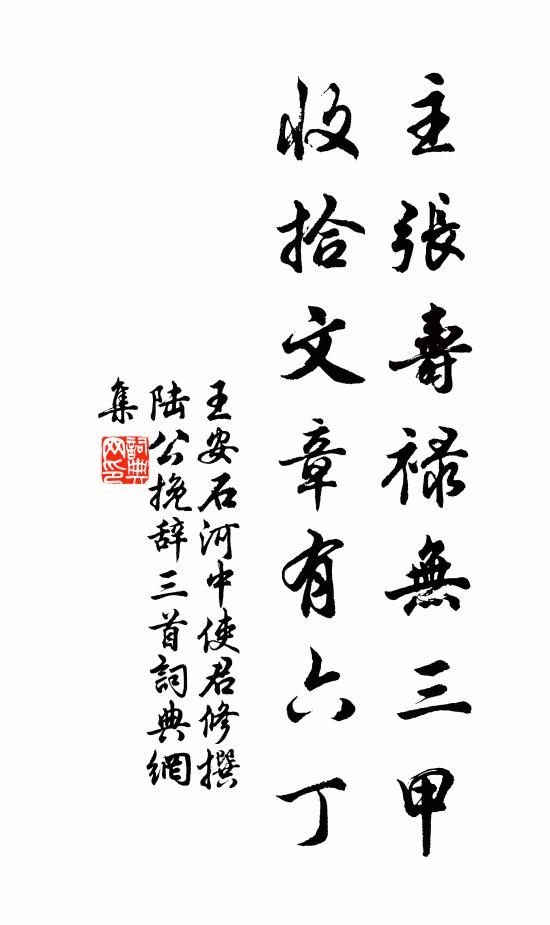 主張壽祿無三甲
收拾文章有六丁
王安石河中使君修撰
陆公挽辞三首詞典網
集
詞典
网印